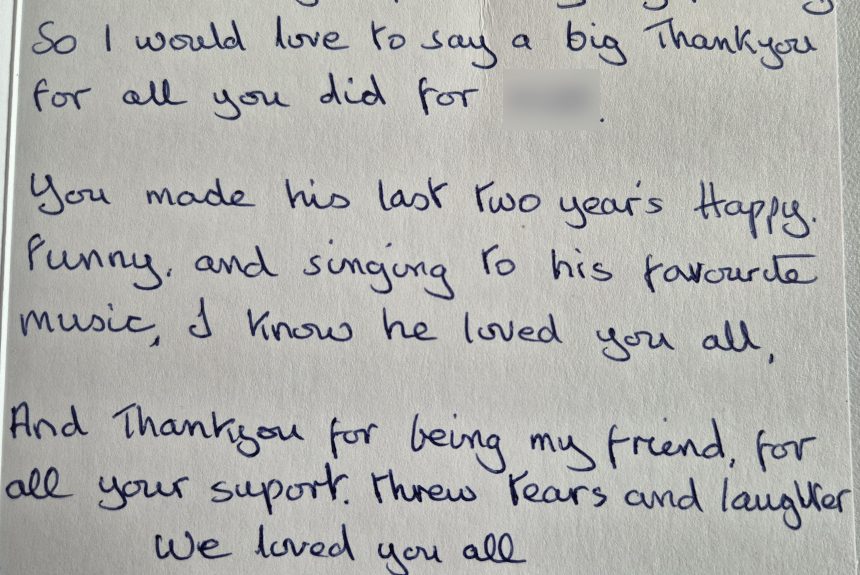 So I would love to say a big Thankyou
for all you did for .
You made his last two year's Happy.
Funny, and singing to his favourite
music, I know he loved you all,
And Thankyou for being my friend, for
all your suport. threw tears and laughter
We loved you all